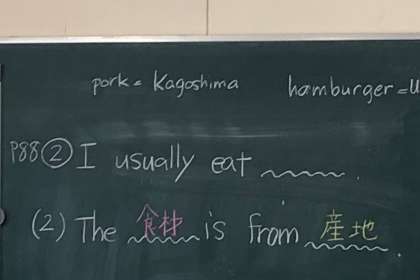 pork = Kagoshima hamburger = U
P88 ② I usually eat ~~~~.
(2) The 食材 is from 産地.